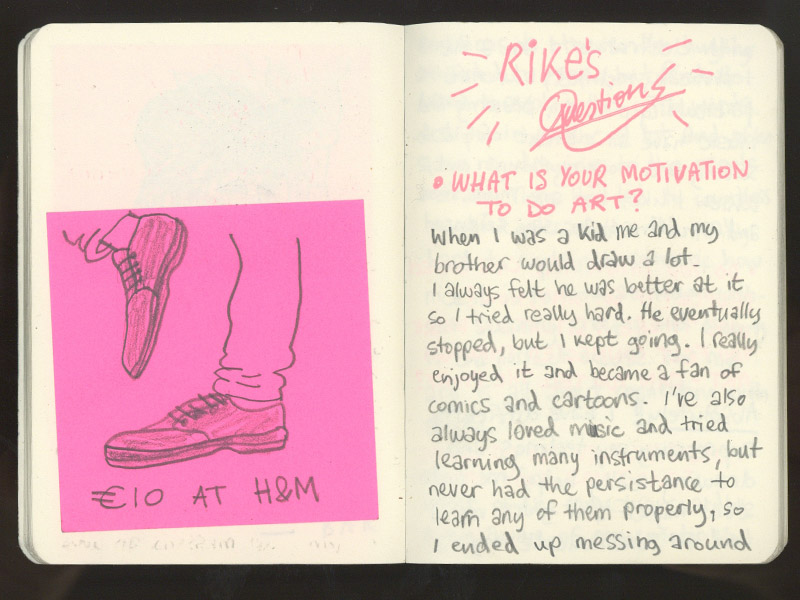 €10 AT H&M
RIKE's
Questions
• WHAT IS YOUR MOTIVATION
TO DO ART?
When I was a kid me and my
brother would draw a lot.
I always felt he was better at it
so I tried really hard. He eventually
stopped, but I kept going. I really
enjoyed it and became a fan of
comics and cartoons. I've also
always loved music and tried
learning many instruments, but
never had the persistance to
learn any of them properly, so
I ended up messing around